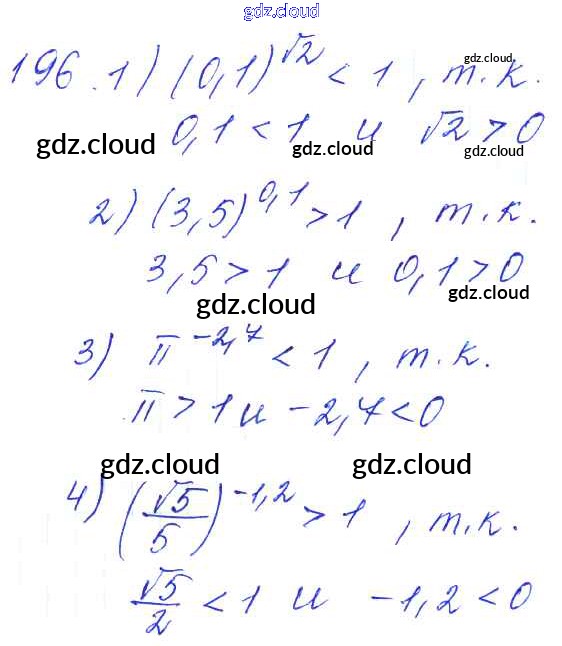 gdz.cloud
196. 1) (0,1)^√2 < 1, т.к. gdz.cloud
gdz.cloud 0,1 < 1 и √2 > 0 gdz.cloud gdz.cloud
2) (3,5)^0,1 > 1, т.к.
3,5 > 1 и 0,1 > 0
gdz.cloud gdz.cloud
3) π^-2,7 < 1, т.к.
π > 1 и -2,7 < 0
gdz.cloud gdz.cloud
4) (√5/5)^-1,2 > 1, т.к.
√5/2 < 1 и -1,2 < 0